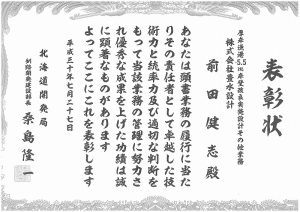 表彰状
厚岸道湾5.5m岸壁改良実施設計その他業務
株式会社豊水設計
前田健志殿
あなたは頭書業務の履行に当た
りその責任者として卓越した技
術力と統率力及び適切な判断を
もって当該業務の管理に努力さ
れ優秀な成果を上げた功績は誠
に顕著なものがあります
よってここにこれを表彰します
平成三十年七月二十七日
北海道開発局
釧路開発建設部長
桑島隆一